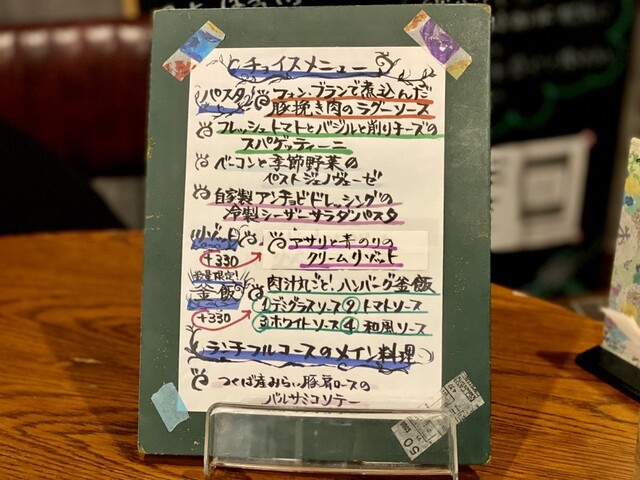 チョイスメニュー
パスタ フォン・ブランで煮込んだ
豚挽き肉のラグーソース
フレッシュトマトとバジルと削りチーズの
スパゲッティーニ
ベーコンと季節野菜の
ペストジェノヴェーゼ
自家製アンチョビドレッシングの
冷製シーザーサラダパスタ
リゾット アサリと青のりの
+330 クリームリゾット
数量限定!
釜飯 肉汁丸ごと!ハンバーグ釜飯
①デミグラスソース ②トマトソース
+330 ③ホワイトソース ④和風ソース
ランチフルコースのメイン料理
つくば産みらい豚肩ロースの
バルサミコソテー